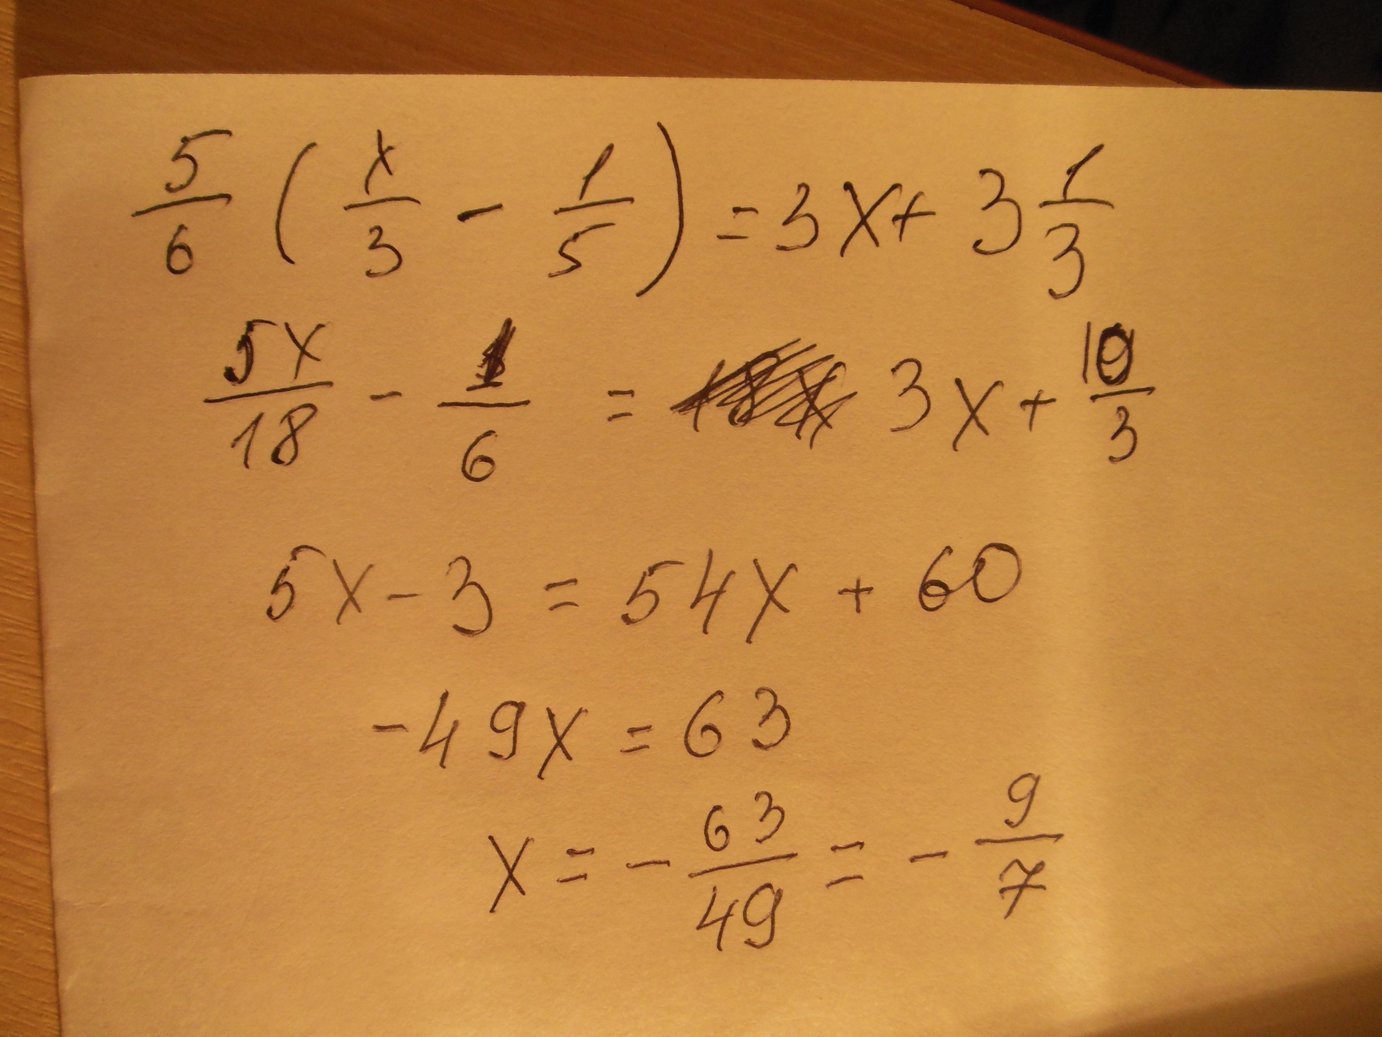 5/6 (x/3 - 1/5) = 3x + 3 1/3
5x/18 - 1/6 = 3x + 10/3
5x - 3 = 54x + 60
-49x = 63
x = - 63/49 = - 9/7